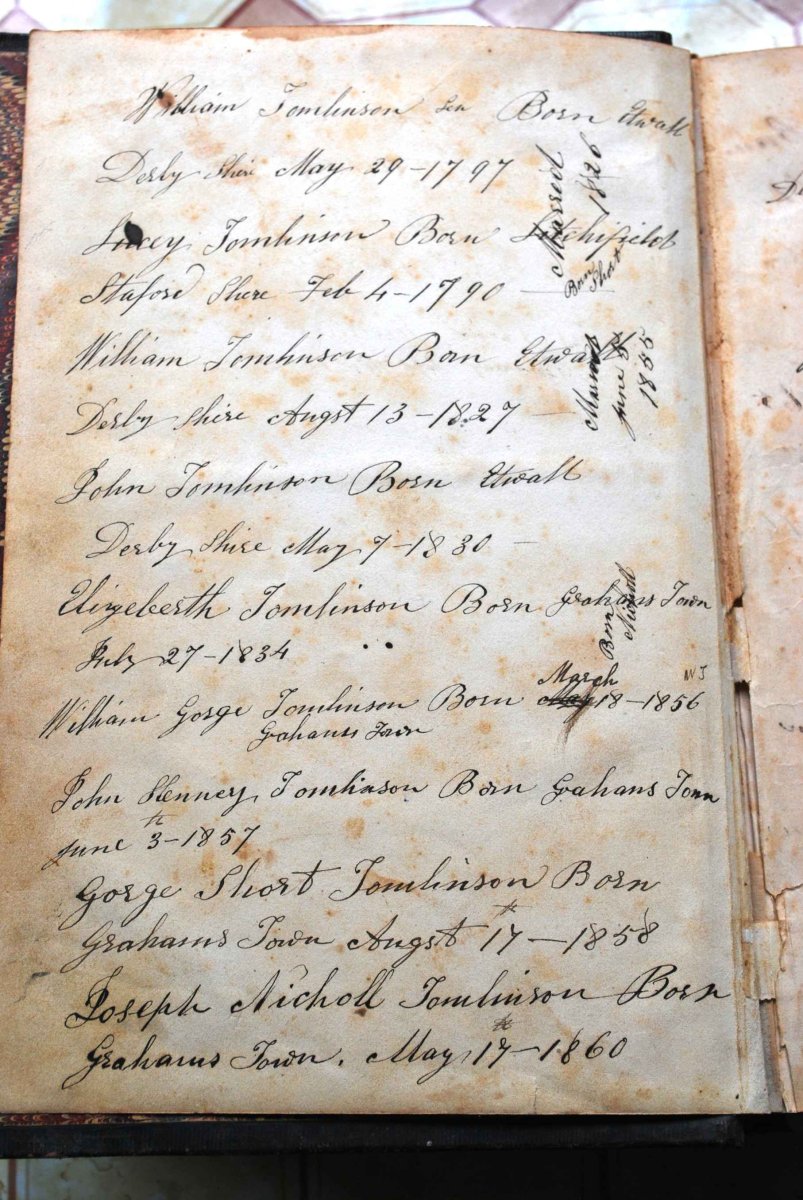 William Tomlinson Sen Born Etwall
Derby Shire May 29-1797
Married 1826
Lucey Tomlinson Born Litchifield
Born Short
Staford Shire Feb 4-1790
William Tomlinson Born Etwall
Married June 5 1855
Derby Shire Augst 13-1827
John Tomlinson Born Etwall
Derby Shire May 7-1830
Elizeberth Tomlinson Born Grahans Town
Born Nicholl
July 27-1834
William Gorge Tomlinson Born March 18-1856
Grahams Town
John Henney Tomlinson Born Grahans Town
June 3th-1857
Gorge Short Tomlinson Born
Grahams Town Augst 17th-1858
Joseph Nicholl Tomlinson Born
Grahams Town. May 17th-1860